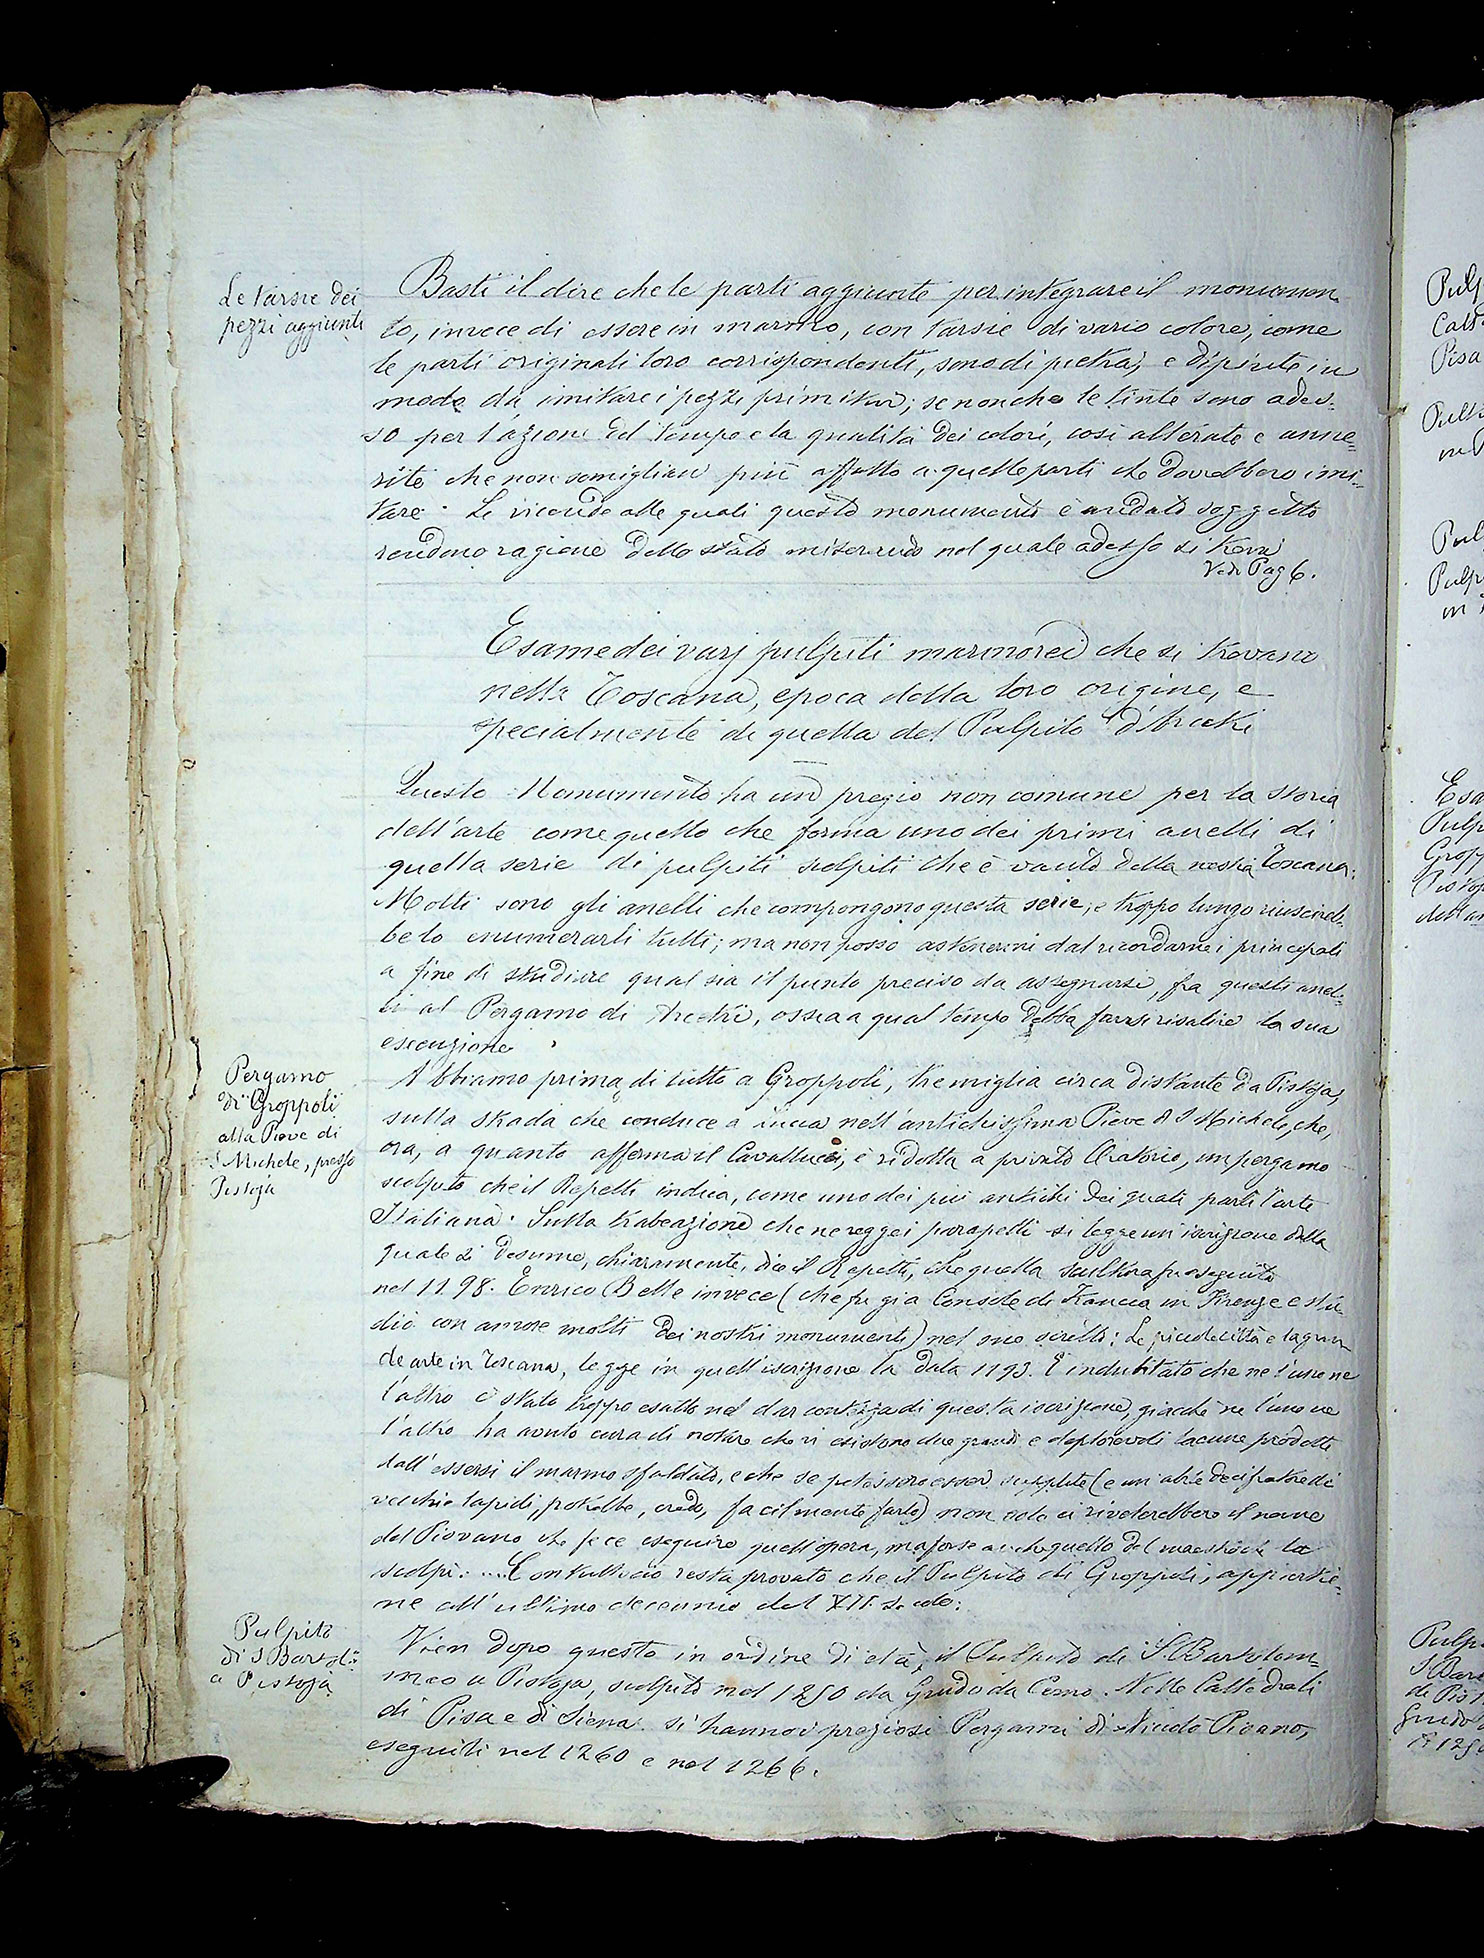 Le tarsie dei
pezzi aggiunti
Basti il dire che le parti aggiunte per integrare il monumen-
to, invece di essere in marmo, con tarsie di vario colore, come
le parti originali loro corrispondenti, sono di pietra, e dipinte in
modo da imitare i pezzi primitivi; se non che le tinte sono ades-
so per l'azione del tempo e la qualità dei colori, così alterate e anne-
rite che non somigliano più affatto a quelle parti che dovrebbero imi-
tare. Le vicende alle quali questo monumento è andato soggetto
rendono ragione dello stato miserando nel quale adesso si trova
Vedi Pag 6.
Esame dei varj pulpiti marmorei che si trovano
nella Toscana, epoca della loro origine, e
specialmente di quella del Pulpito d'Arcetri
Questo Monumento ha un pregio non comune per la storia
dell'arte come quello che forma uno dei primi anelli di
quella serie di pulpiti scolpiti che è vanto della nostra Toscana.
Molti sono gli anelli che compongono questa serie, e troppo lungo riuscireb-
be lo enumerarli tutti; ma non posso astenermi dal ricordarne i principali
a fine di studiare qual sia il punto preciso da assegnarsi, fra questi anel-
li al Pergamo di Arcetri, ossia a qual tempo debba farsi risalire la sua
esecuzione.
Pergamo
di Groppoli
alla Pieve di
S Michele, presso
Pistoja
Abbiamo prima di tutto a Groppoli, tre miglia circa distante da Pistoja,
sulla strada che conduce a Lucca nell'antichissima Pieve di S Michele, che,
ora, a quanto afferma il Cavallucci, è ridotta a privato Oratorio, un pergamo
scolpito che il Repetti indica, come uno dei più antichi dei quali parli l'arte
Italiana. Sulla trabeazione che ne regge i parapetti si legge un'iscrizione dalla
quale si desume, chiaramente, dice il Repetti, che quella scultura fu eseguita
nel 1198. Enrico Belle invece (che fu già Console di Francia in Firenze e stu-
diò con amore molti dei nostri monumenti) nel suo scritto: Le piccole città e la gran-
de arte in Toscana, legge in quell'iscrizione la data 1193. È indubitato che ne l'uno ne
l'altro è stato troppo esatto nel dar contezza di questa iscrizione, giacchè ne l'uno ne
l'altro ha avuto cura di notare che vi esistono due grandi e deplorevoli lacune prodotte
dall'essersi il marmo sfaldato, e che se potessero esser supplite (e un abile decifratore di
vecchie lapidi, potrebbe, credo, facilmente farlo) non solo ci rivelerebbero il nome
del Piovano che fece eseguire quell'opera, ma forse anche quello del maestro che la
scolpì.... Con tutto ciò resta provato che il Pulpito di Groppoli, appartie-
ne all'ultimo decennio del XII secolo.
Pulpito
di S Bartol:
a Pistoja
Vien dopo questo in ordine di età, il Pulpito di S. Bartolom-
meo a Pistoja, scolpito nel 1250 da Guido da Como. Nelle Cattedrali
di Pisa e di Siena si hanno i preziosi Pergami di Niccolò Pisano,
eseguiti nel 1260 e nel 1266.